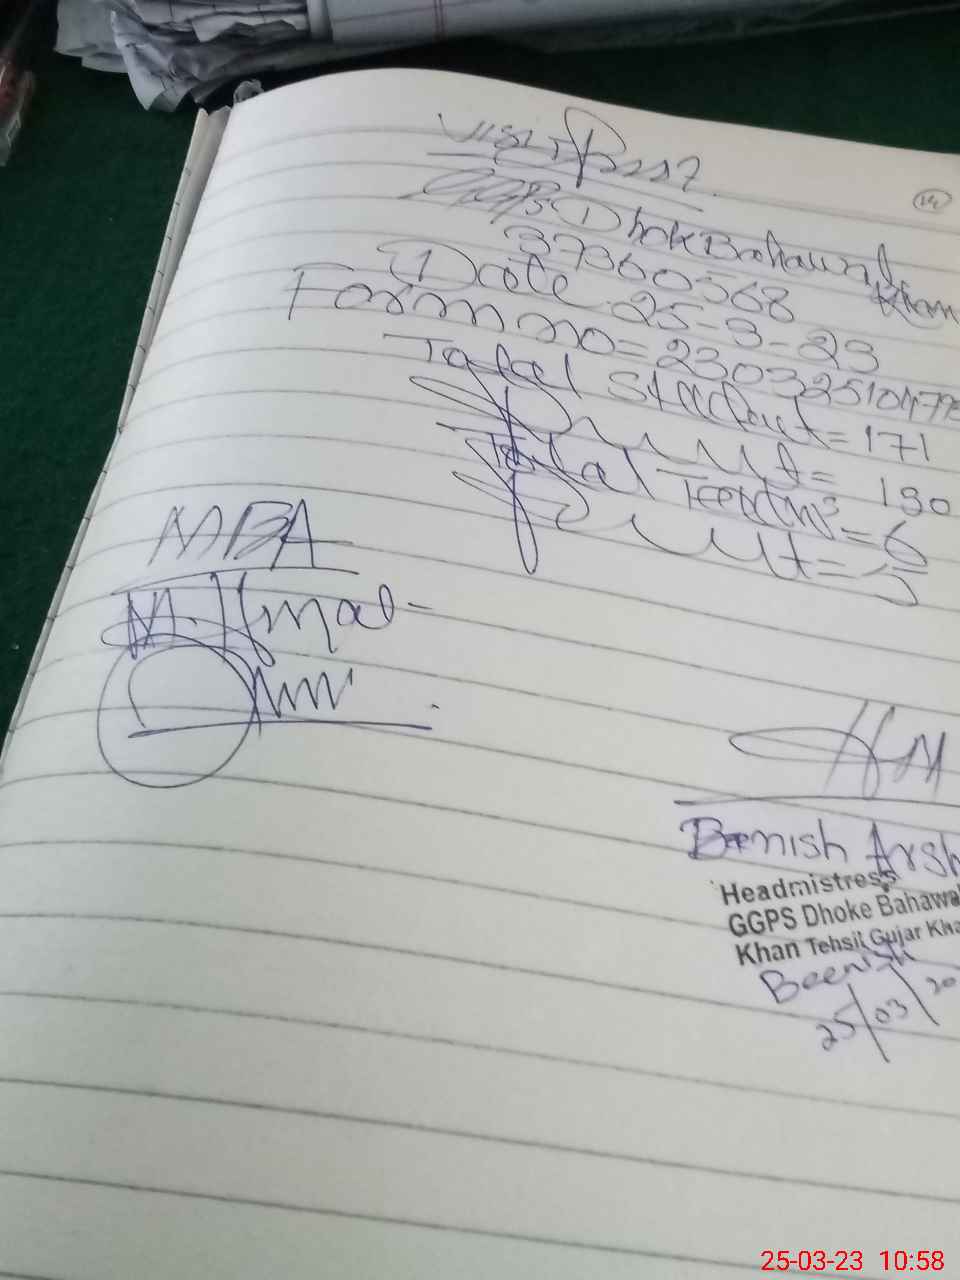 14
Dhok Bahawal Khan
37360568
Date 25-3-23
Form no = 2303251047
Total Student = 171
= 130
Total Teachers = 6
= 5
MBA
HM
Beenish Arsh
Headmistress
GGPS Dhoke Bahawal
Khan Tehsil Gujar Kha
Beenish
25/03/20
25-03-23 10:58